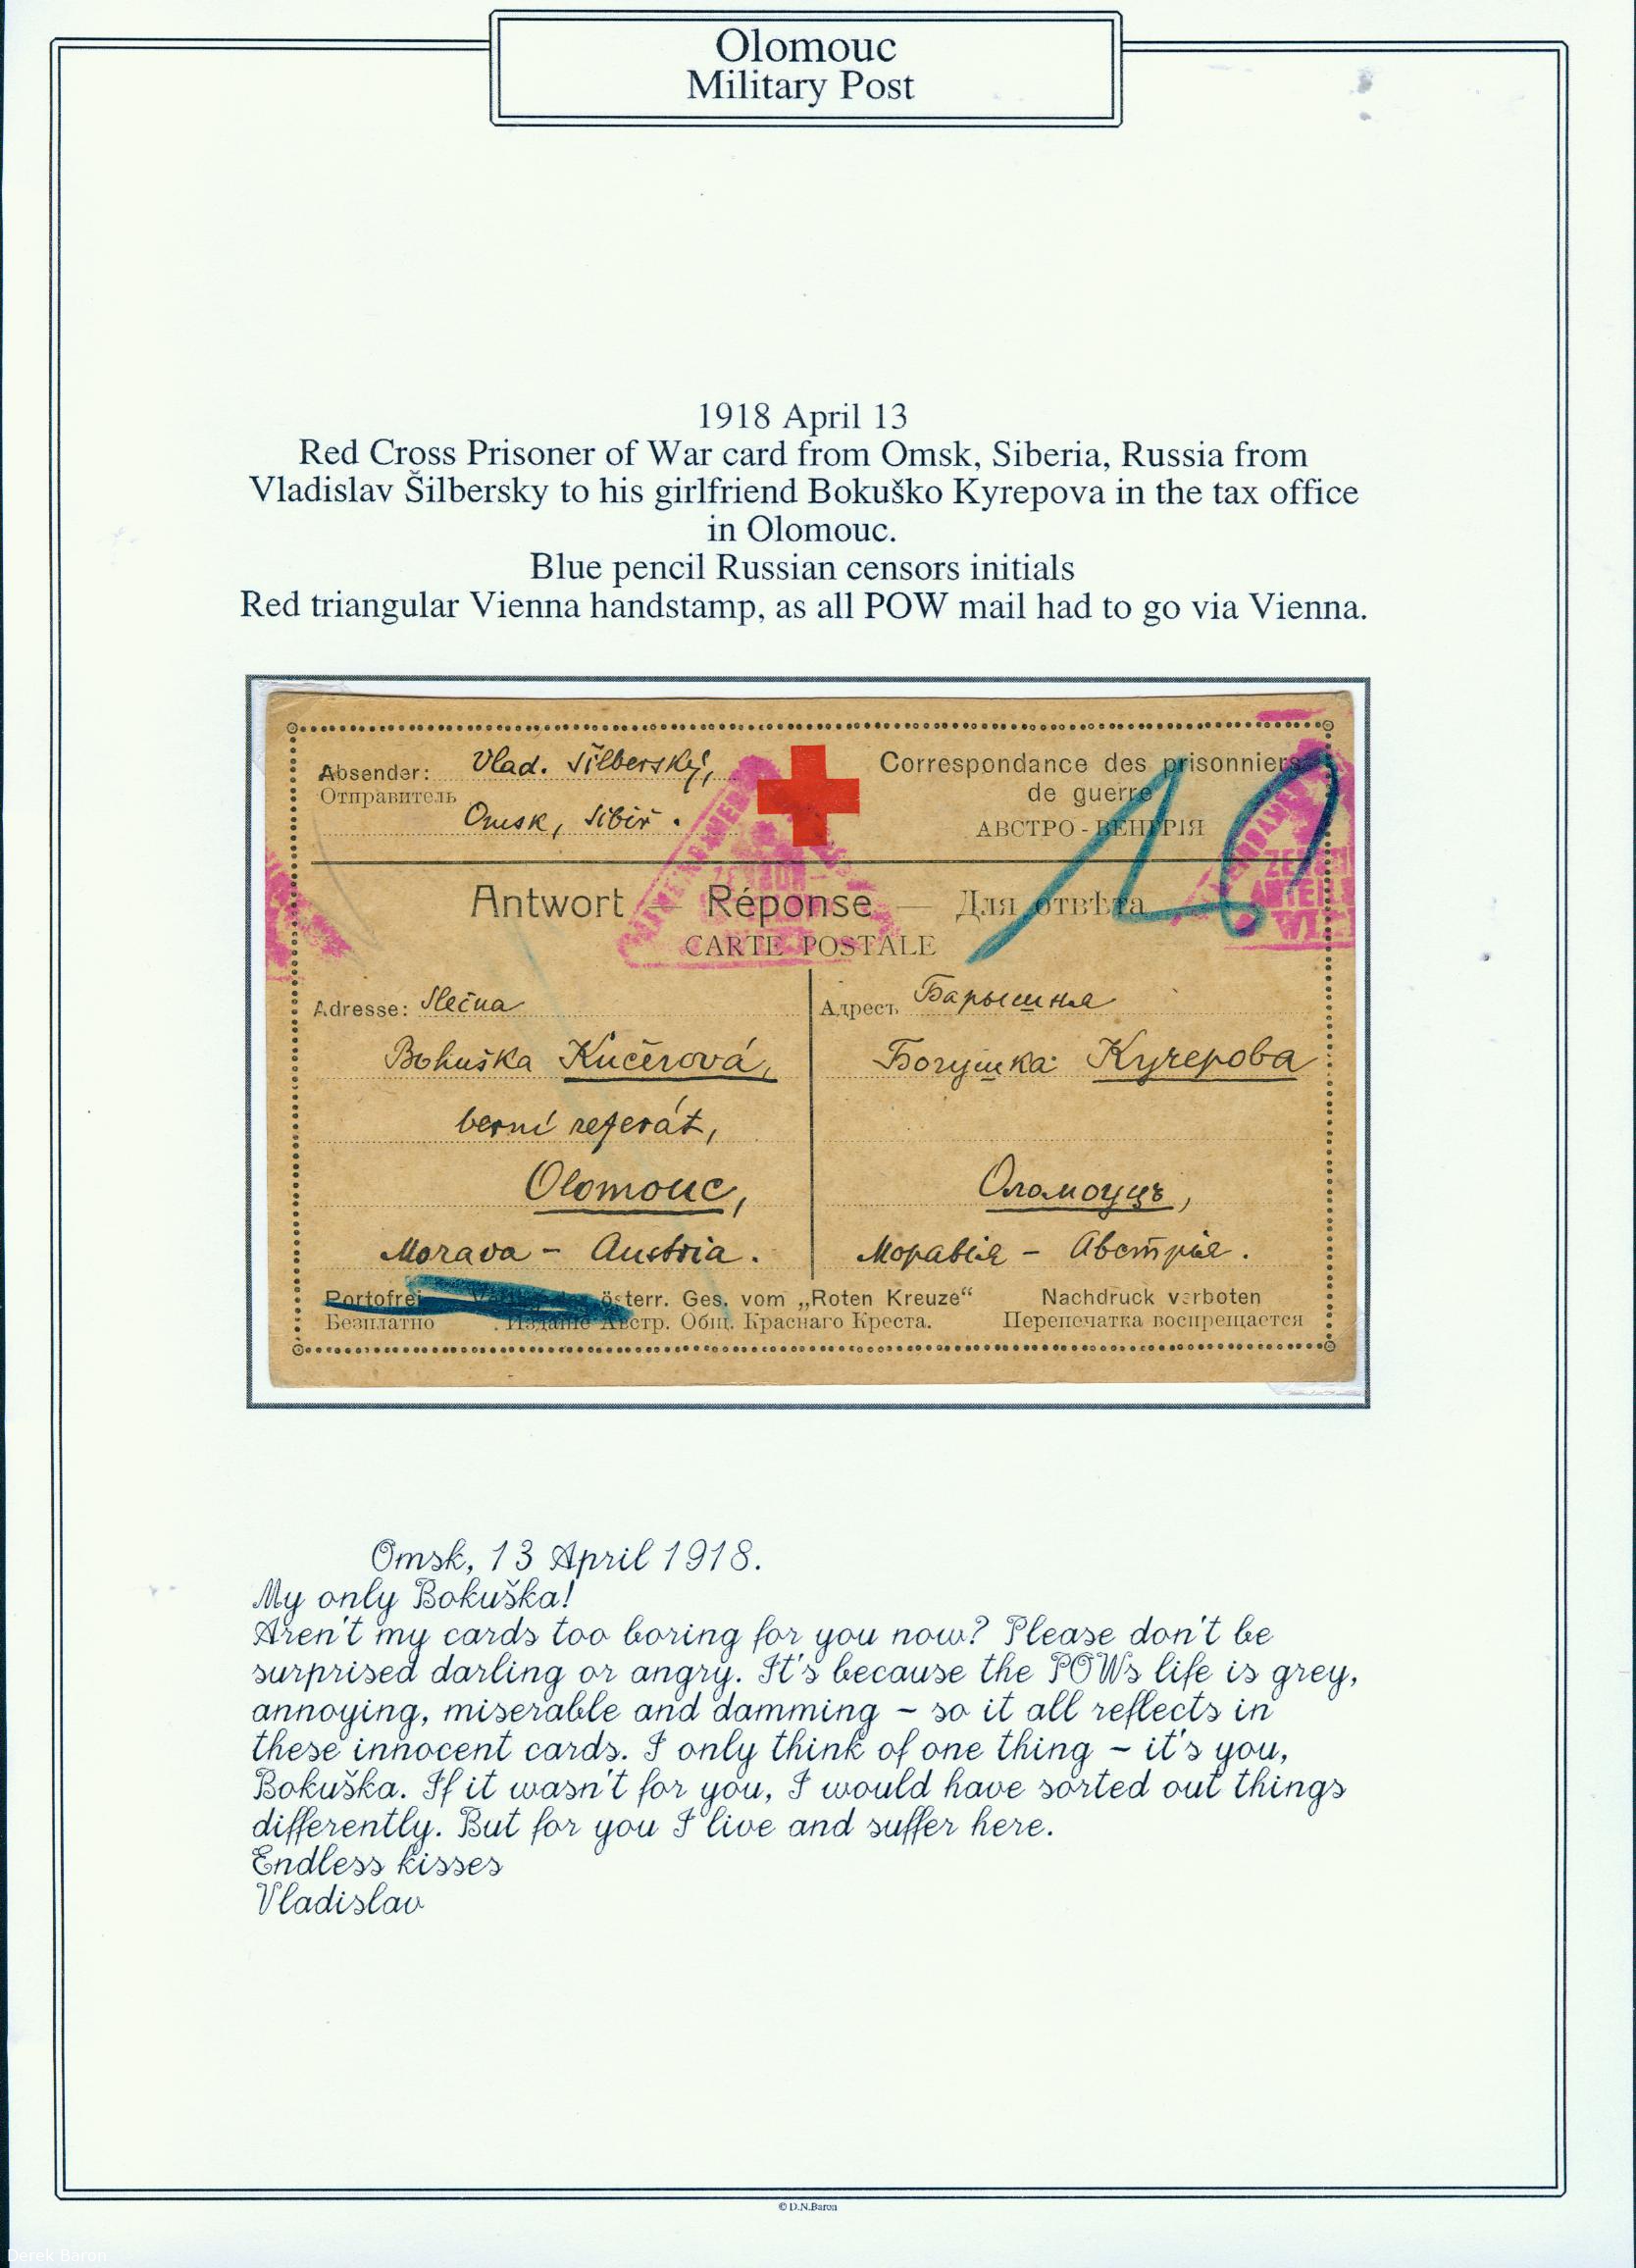 Olomouc
Military Post
1918 April 13
Red Cross Prisoner of War card from Omsk, Siberia, Russia from
Vladislav Šilbersky to his girlfriend Bokuško Kyrepova in the tax office
in Olomouc.
Blue pencil Russian censors initials
Red triangular Vienna handstamp, as all POW mail had to go via Vienna.
Absender: Vlad. Šilberský,
Отправитель
Omsk, Sibiř.
Correspondance des prisonniers
de guerre
АВСТРО - ВЕНГРІЯ
Antwort — Réponse — Для отвѣта
CARTE POSTALE
Adresse: Slečna
Bohuška Kučerová,
berní referát,
Olomouc,
Morava - Austria.
Адресъ Барышня
Богушка Кучерова
Оломоуцъ,
Моравія - Австрія.
Portofrei österr. Ges. vom „Roten Kreuze“ Nachdruck verboten
Безплатно Изданіе Австр. Общ. Краснаго Креста. Перепечатка воспрещается
Omsk, 13 April 1918.
My only Bokuška!
Aren't my cards too boring for you now? Please don't be
surprised darling or angry. It's because the POWs life is grey,
annoying, miserable and damming - so it all reflects in
these innocent cards. I only think of one thing - it's you,
Bokuška. If it wasn't for you, I would have sorted out things
differently. But for you I live and suffer here.
Endless kisses
Vladislav
© D.N.Baron
Derek Baron